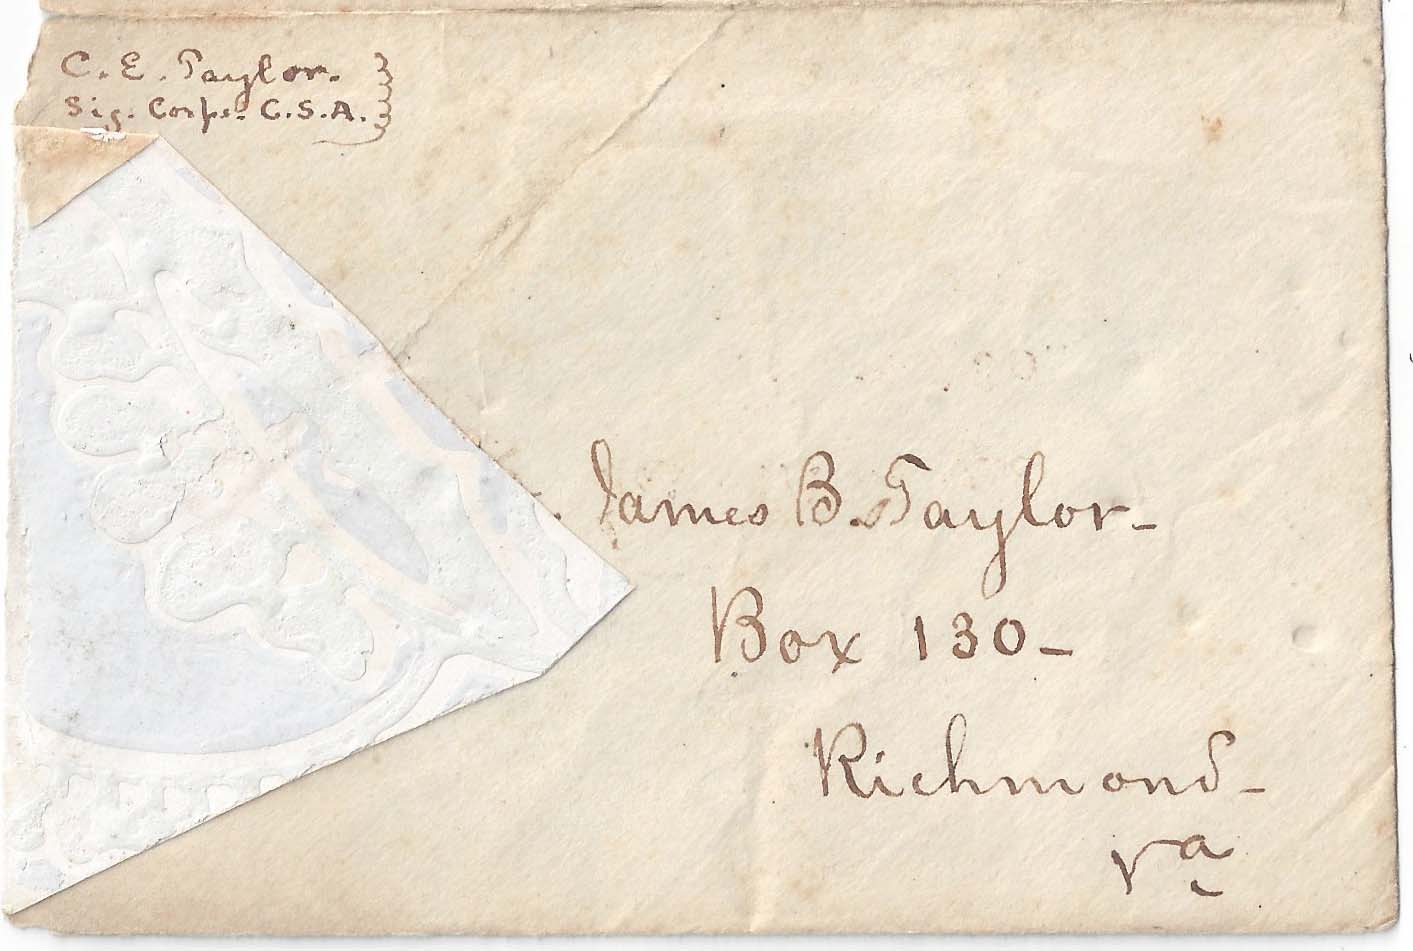 C. E. Taylor.
Sig. Corps. C.S.A.
James B. Taylor-
Box 130-
Richmond-
Va